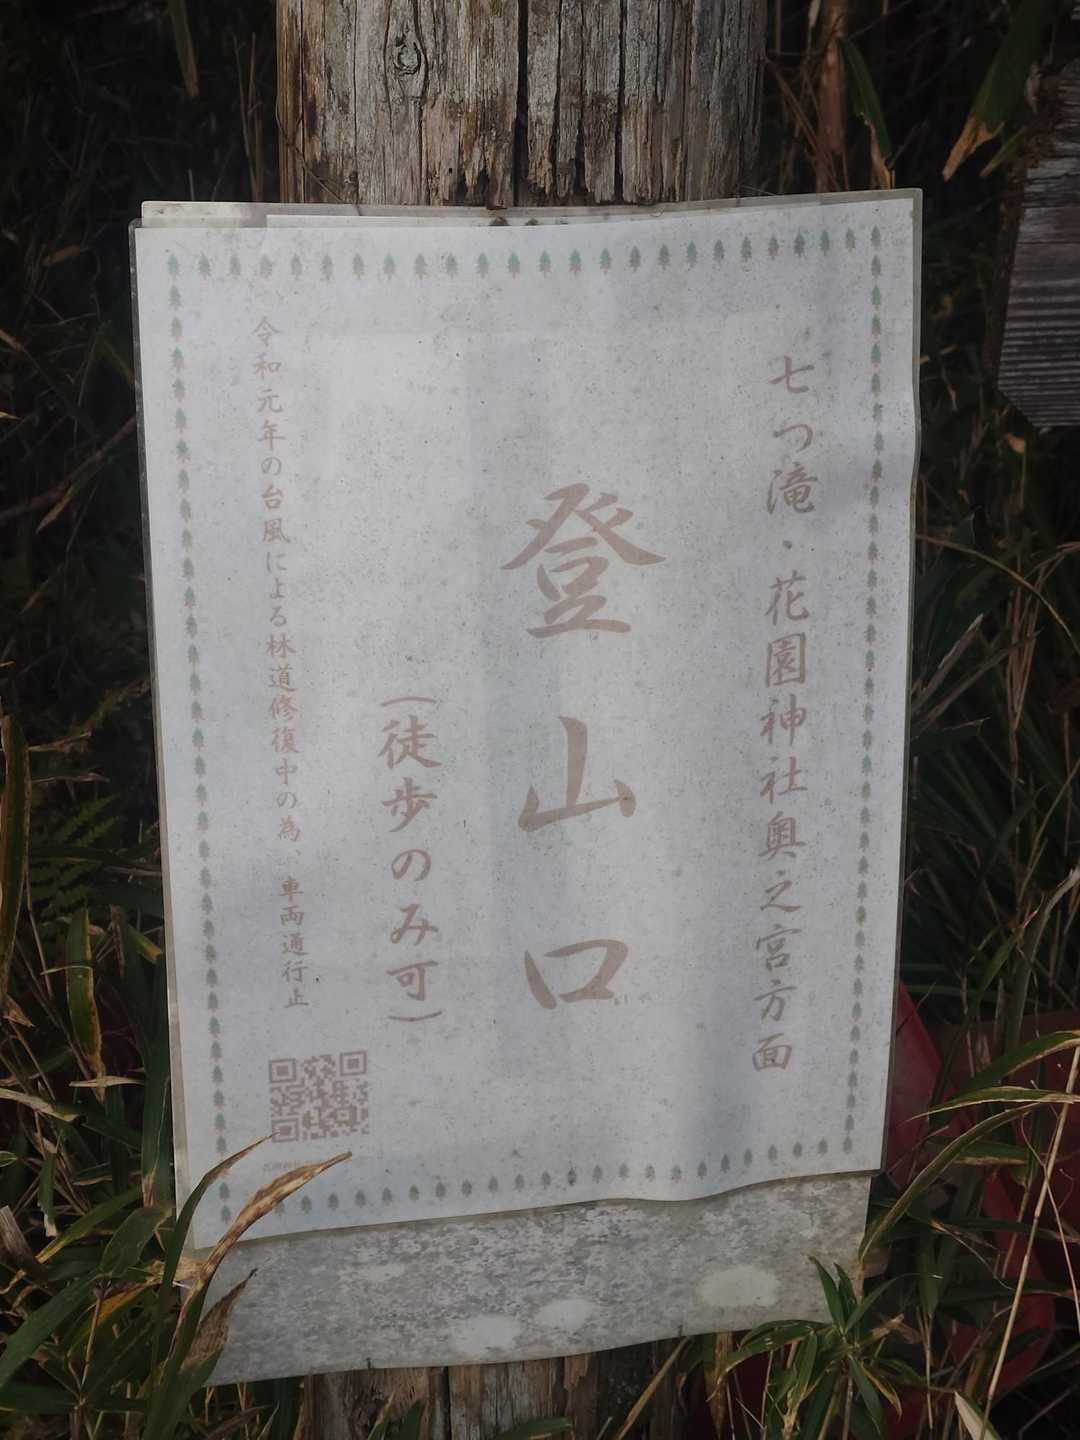 七つ滝・花園神社奥之宮方面
登山口
（徒歩のみ可）
令和元年の台風による林道修復中の為、車両通行止